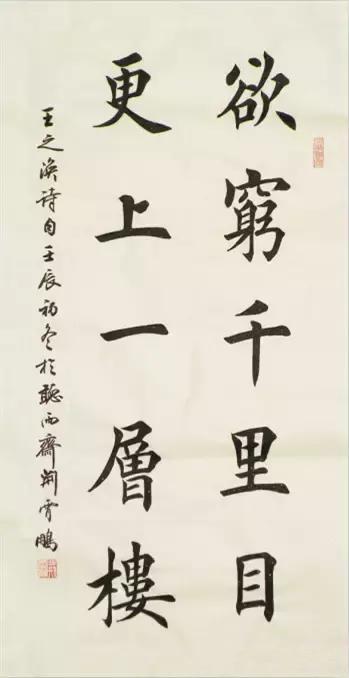 欲窮千里目
更上一層樓
王之渙詩句壬辰初冬於聽雨齋閑雲鵬